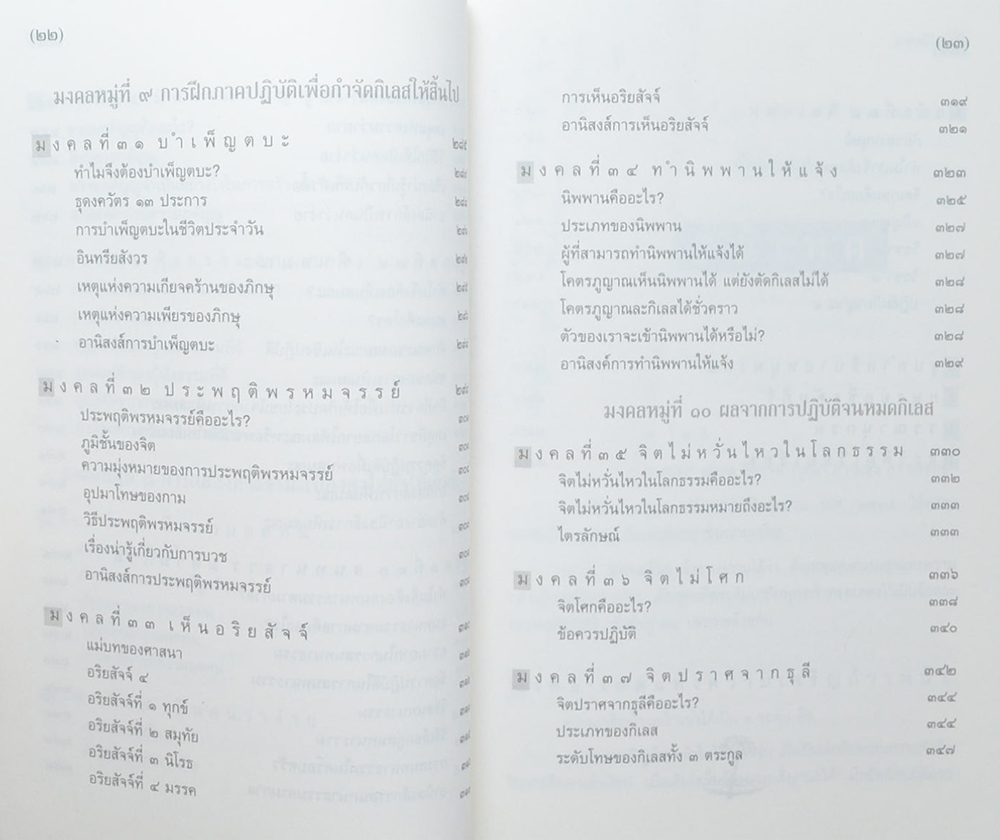 (๒๒)
มงคลหมู่ที่ ๙ การฝึกภาคปฏิบัติเพื่อกำจัดกิเลสให้สิ้นไป
มงคลที่ ๓๑ บำเพ็ญตบะ
ทำไมจึงต้องบำเพ็ญตบะ?
ธุดงควัตร ๑๓ ประการ
การบำเพ็ญตบะในชีวิตประจำวัน
อินทรียสังวร
เหตุแห่งความเกียจคร้านของภิกษุ
เหตุแห่งความเพียรของภิกษุ
อานิสงส์การบำเพ็ญตบะ
มงคลที่ ๓๒ ประพฤติพรหมจรรย์
ประพฤติพรหมจรรย์คืออะไร?
ภูมิชั้นของจิต
ความมุ่งหมายของการประพฤติพรหมจรรย์
อุปมาโทษของกาม
วิธีประพฤติพรหมจรรย์
เรื่องน่ารู้เกี่ยวกับการบวช
อานิสงส์การประพฤติพรหมจรรย์
มงคลที่ ๓๓ เห็นอริยสัจจ์
แม่บทของศาสนา
อริยสัจจ์ ๔
อริยสัจจ์ที่ ๑ ทุกข์
อริยสัจจ์ที่ ๒ สมุทัย
อริยสัจจ์ที่ ๓ นิโรธ
อริยสัจจ์ที่ ๔ มรรค
(๒๓)
การเห็นอริยสัจจ์ ๓๑๙
อานิสงส์การเห็นอริยสัจจ์ ๓๒๑
มงคลที่ ๓๔ ทำนิพพานให้แจ้ง ๓๒๓
นิพพานคืออะไร? ๓๒๕
ประเภทของนิพพาน ๓๒๗
ผู้ที่สามารถทำนิพพานให้แจ้งได้ ๓๒๗
โคตรภูญาณเห็นนิพพานได้ แต่ยังตัดกิเลสไม่ได้ ๓๒๘
โคตรภูญาณละกิเลสได้ชั่วคราว ๓๒๘
ตัวของเราจะเข้านิพพานได้หรือไม่? ๓๒๘
อานิสงส์การทำนิพพานให้แจ้ง ๓๒๙
มงคลหมู่ที่ ๑๐ ผลจากการปฏิบัติจนหมดกิเลส
มงคลที่ ๓๕ จิตไม่หวั่นไหวในโลกธรรม ๓๓๐
จิตไม่หวั่นไหวในโลกธรรมคืออะไร? ๓๓๒
จิตไม่หวั่นไหวในโลกธรรมหมายถึงอะไร? ๓๓๓
ไตรลักษณ์ ๓๓๓
มงคลที่ ๓๖ จิตไม่โศก ๓๓๖
จิตโศกคืออะไร? ๓๓๘
ข้อควรปฏิบัติ ๓๔๐
มงคลที่ ๓๗ จิตปราศจากธุลี ๓๔๒
จิตปราศจากธุลีคืออะไร? ๓๔๔
ประเภทของกิเลส ๓๔๔
ระดับโทษของกิเลสทั้ง ๓ ตระกูล ๓๔๗